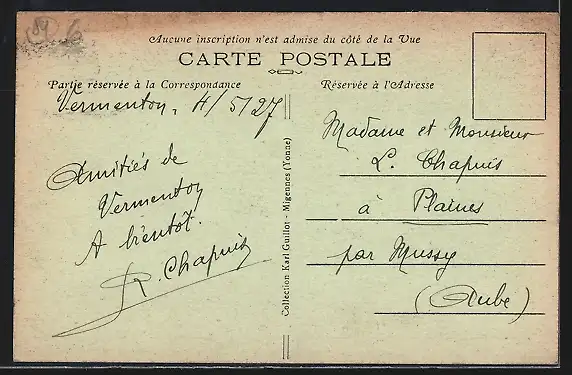 89 6
Aucune inscription n'est admise du côté de la Vue
CARTE POSTALE
Partie réservée à la Correspondance
Réservée à l'Adresse
Vermenton, 4/5/27
Amitiés de
Vermenton
A bientôt.
R. Chapuis
Collection Karl Guillot - Migennes (Yonne)
Madame et Monsieur
L. Chapuis
à Plaines
par Mussy
(Aube)